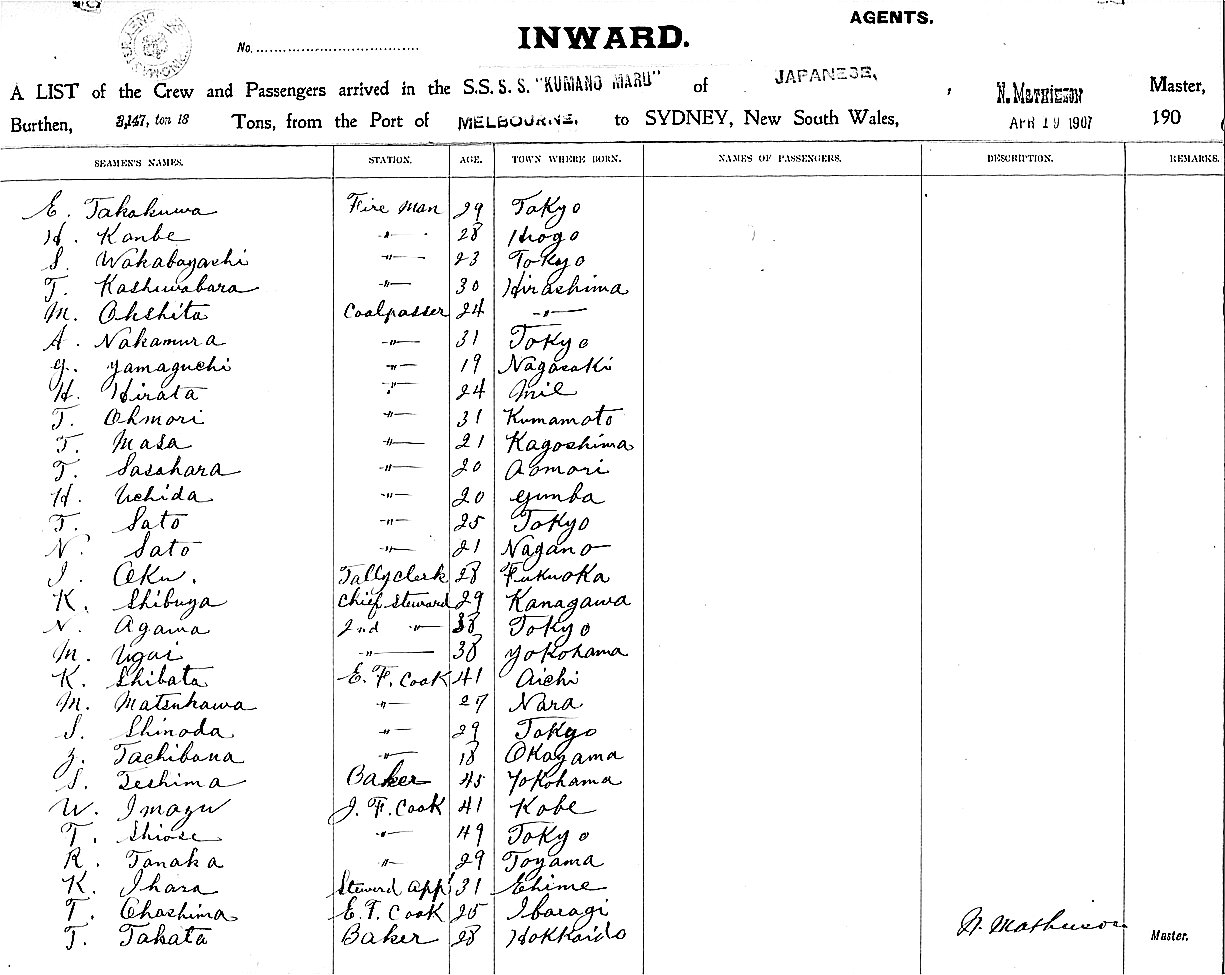 AGENTS.
No. INWARD.
A LIST of the Crew and Passengers arrived in the S.S. S. S. "KUMANO MARU" of JAPANESE, N. MATHIESON Master,
Burthen, 3,147, ton 18 Tons, from the Port of MELBOURNE. to SYDNEY, New South Wales, APR 19 1907 190
SEAMEN'S NAMES. STATION. AGE. TOWN WHERE BORN. NAMES OF PASSENGERS. DESCRIPTION. REMARKS.
E. Takakuwa Fire man 29 Tokyo
H. Kanbe -"- 28 Hiogo
S. Wakabayashi -"- 23 Tokyo
T. Kashuwabara -"- 30 Hirashima
M. Ohshita Coalpasser 24 -"-
A. Nakamura -"- 31 Tokyo
G. Yamaguchi -"- 19 Nagasaki
H. Hirata -"- 24 MiE
T. Ohmori -"- 31 Kumamoto
T. Masa -"- 21 Kagoshima
T. Sasahara -"- 20 Aomori
H. Uchida -"- 20 Gumba
T. Sato -"- 25 Tokyo
N. Sato -"- 21 Nagano
I. Oku. Tallyclerk 28 Fukuoka
K. Shibuya Chief Steward 29 Kanagawa
N. Agama 2nd -"- 38 Tokyo
M. Ugai -"- 38 Yokohama
K. Shibata E. F. Cook 41 Aichi
M. Matsukawa -"- 27 Nara
S. Shinoda -"- 29 Tokyo
Z. Tachibana -"- 18 Okayama
S. Teshima Baker 45 Yokohama
W. Imazu J. F. Cook 41 Kobe
T. Shiose -"- 49 Tokyo
R. Tanaka -"- 29 Toyama
K. Ihara Steward app 31 Ehime
T. Ohashima E. F. Cook 25 Ibaragi
T. Takata Baker 28 Hokkaido
N. Mathieson Master.